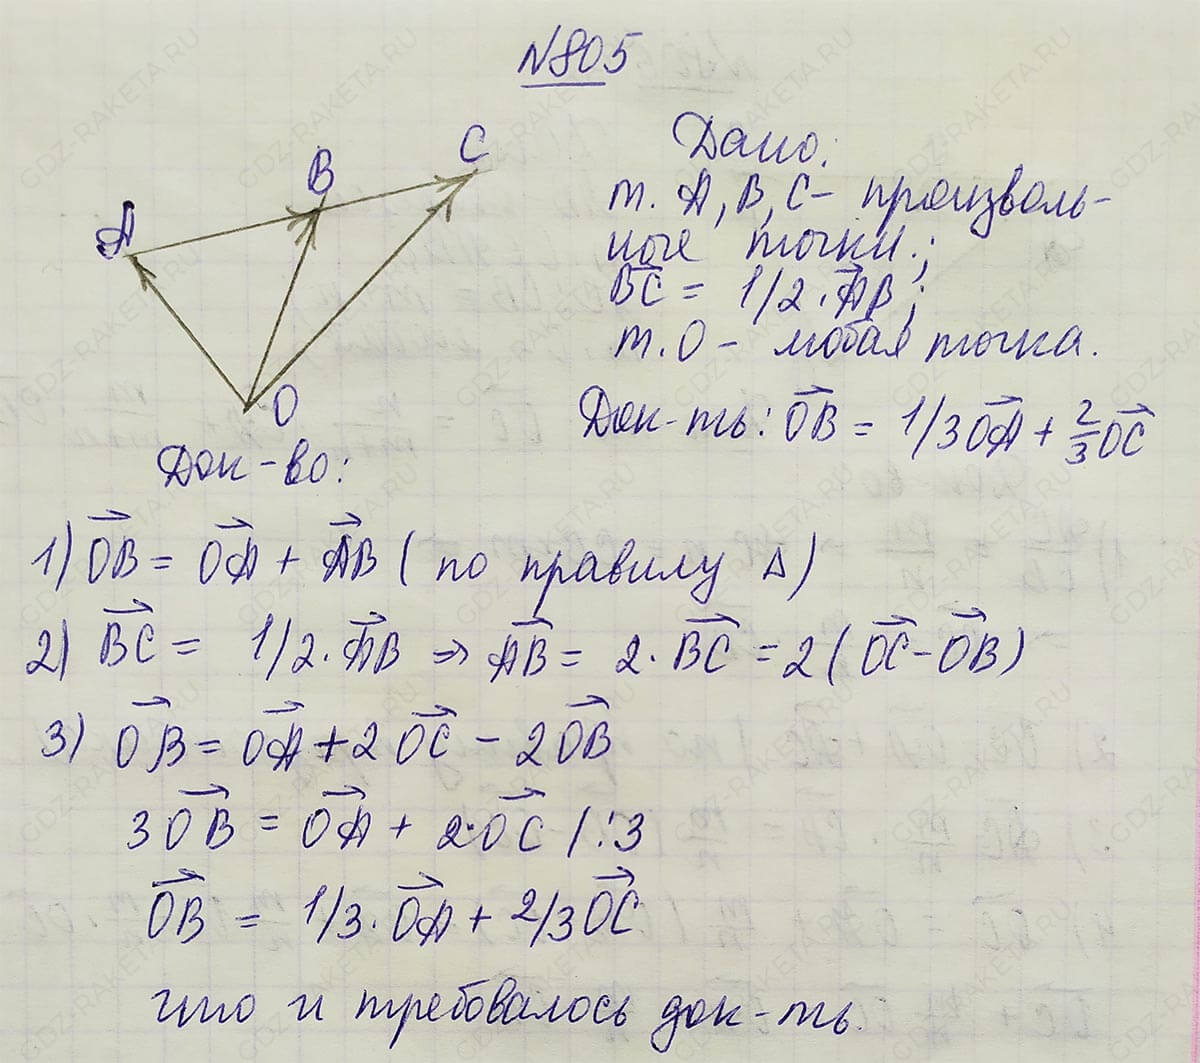 N805
C
B
A
O
Дано:
т. А, В, С - произволь-
ные точки;
BC = 1/2·AB;
т. О - любая точка.
Док-ть: OB = 1/3 OA + 2/3 OC
Док-во:
1) OB = OA + AB (по правилу Δ)
2) BC = 1/2·AB ⇒ AB = 2·BC = 2(OC - OB)
3) OB = OA + 2OC - 2OB
3OB = OA + 2·OC /:3
OB = 1/3·OA + 2/3OC
что и требовалось док-ть.
GDZ-RAKETA.RU